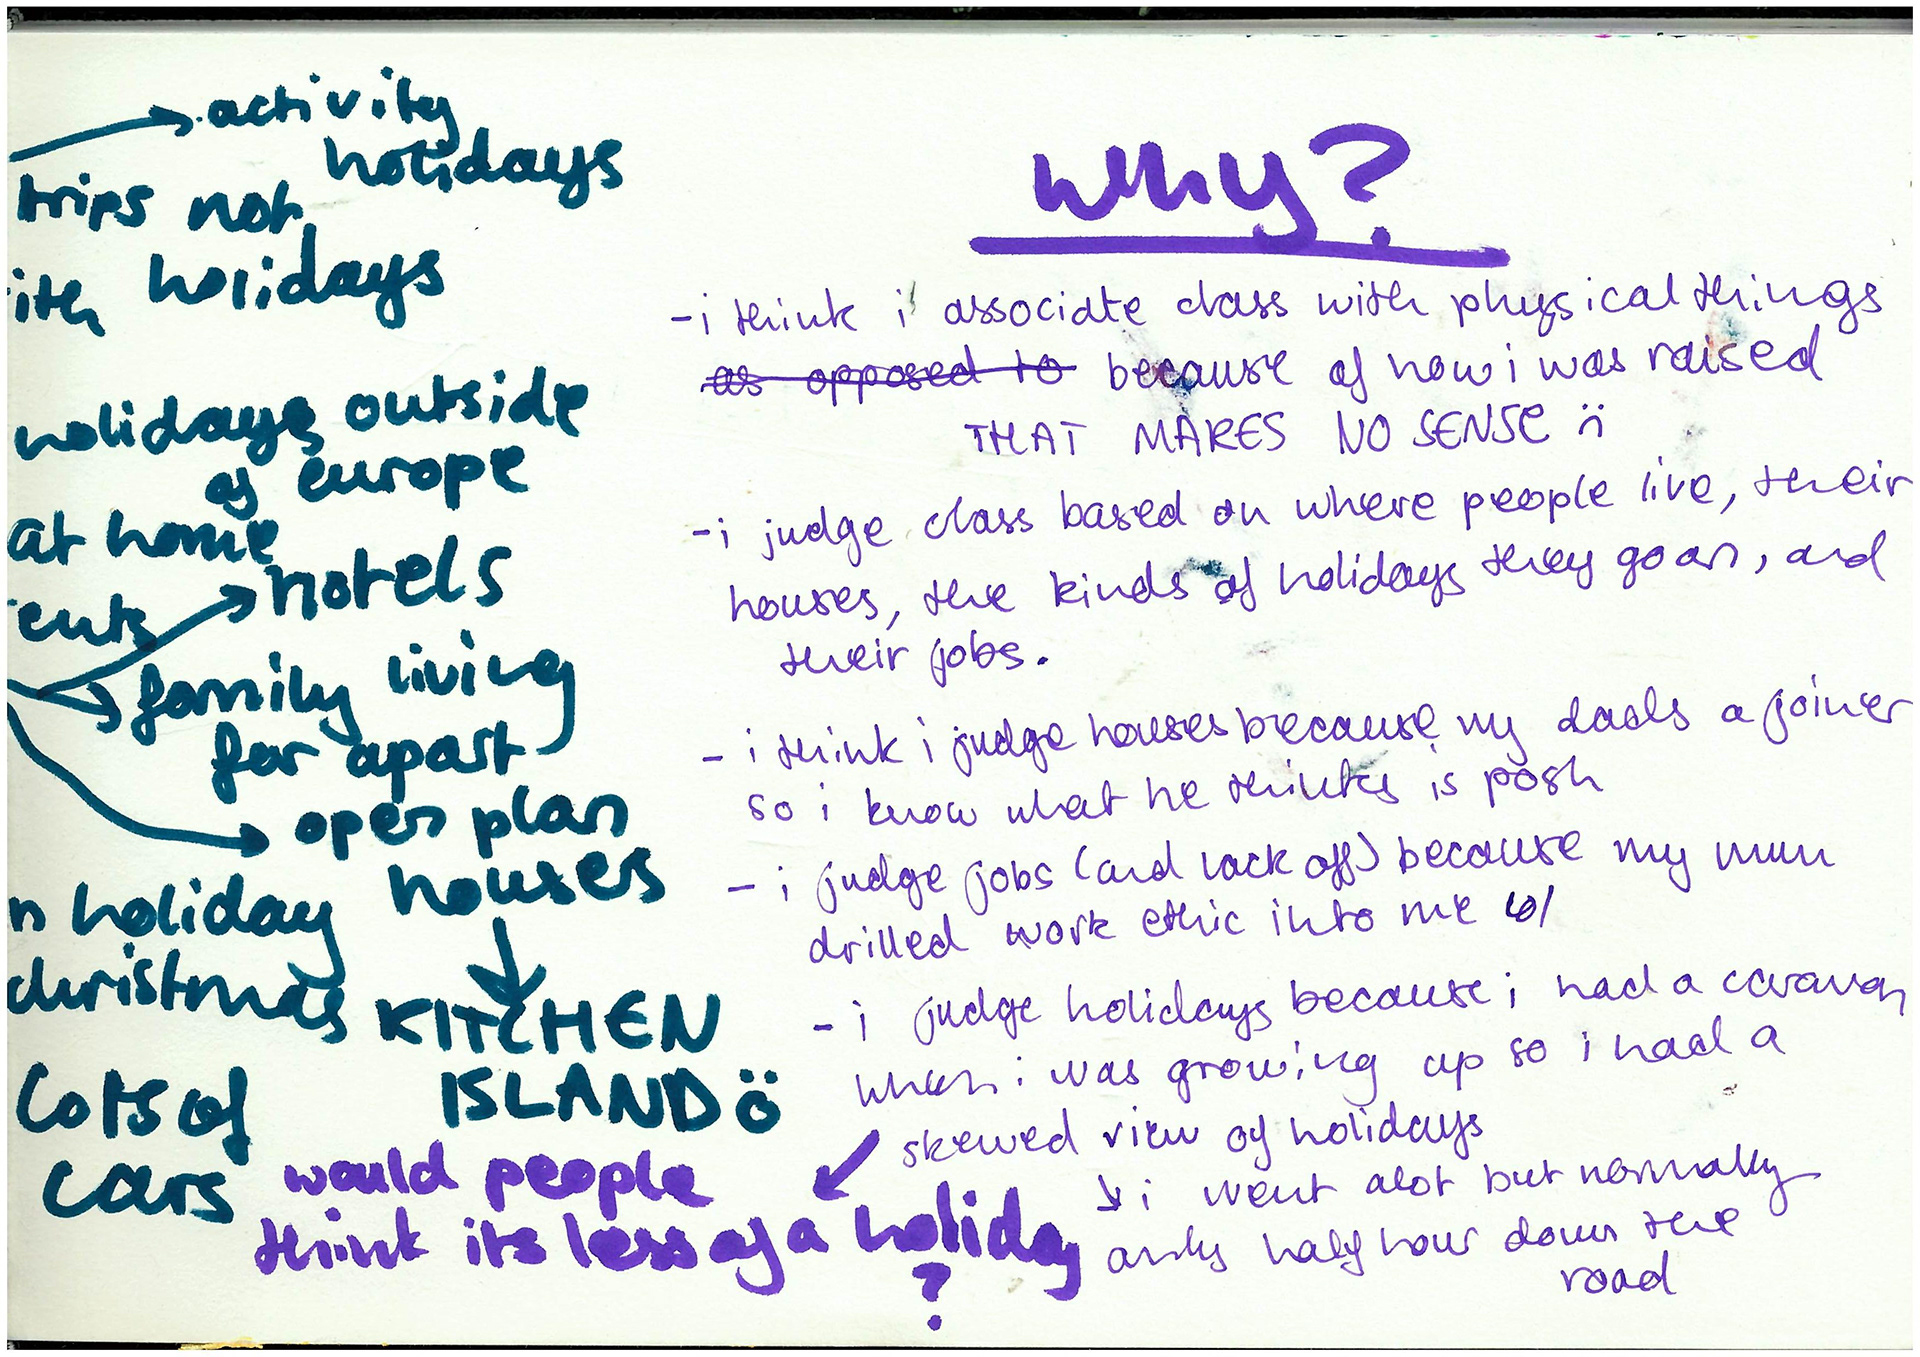 activity
holidays
trips not
holidays
ith
holidays outside
of europe
at home
ents
hotels
family living
far apart
open plan
houses
n holiday
christmas
KITCHEN
ISLAND
Lots of
cars
would people
think its less of a holiday
?
Why?
- i think i associate class with physical things
as opposed to because of how i was raised
THAT MAKES NO SENSE :(
- i judge class based on where people live, their
houses, the kinds of holidays they go on, and
their jobs.
- i think i judge houses because my dads a joiner
so i know what he thinks is posh
- i judge jobs (and lack off) because my mum
drilled work ethic into me
- i judge holidays because i had a caravan
when i was growing up so i had a
skewed view of holidays
i went alot but normally
only half hour down the
road